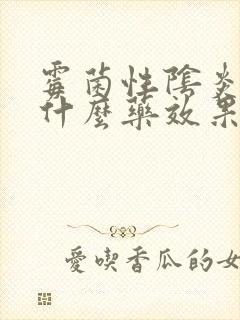 霉菌性陰炎
什麼藥效果
愛喫香瓜的女